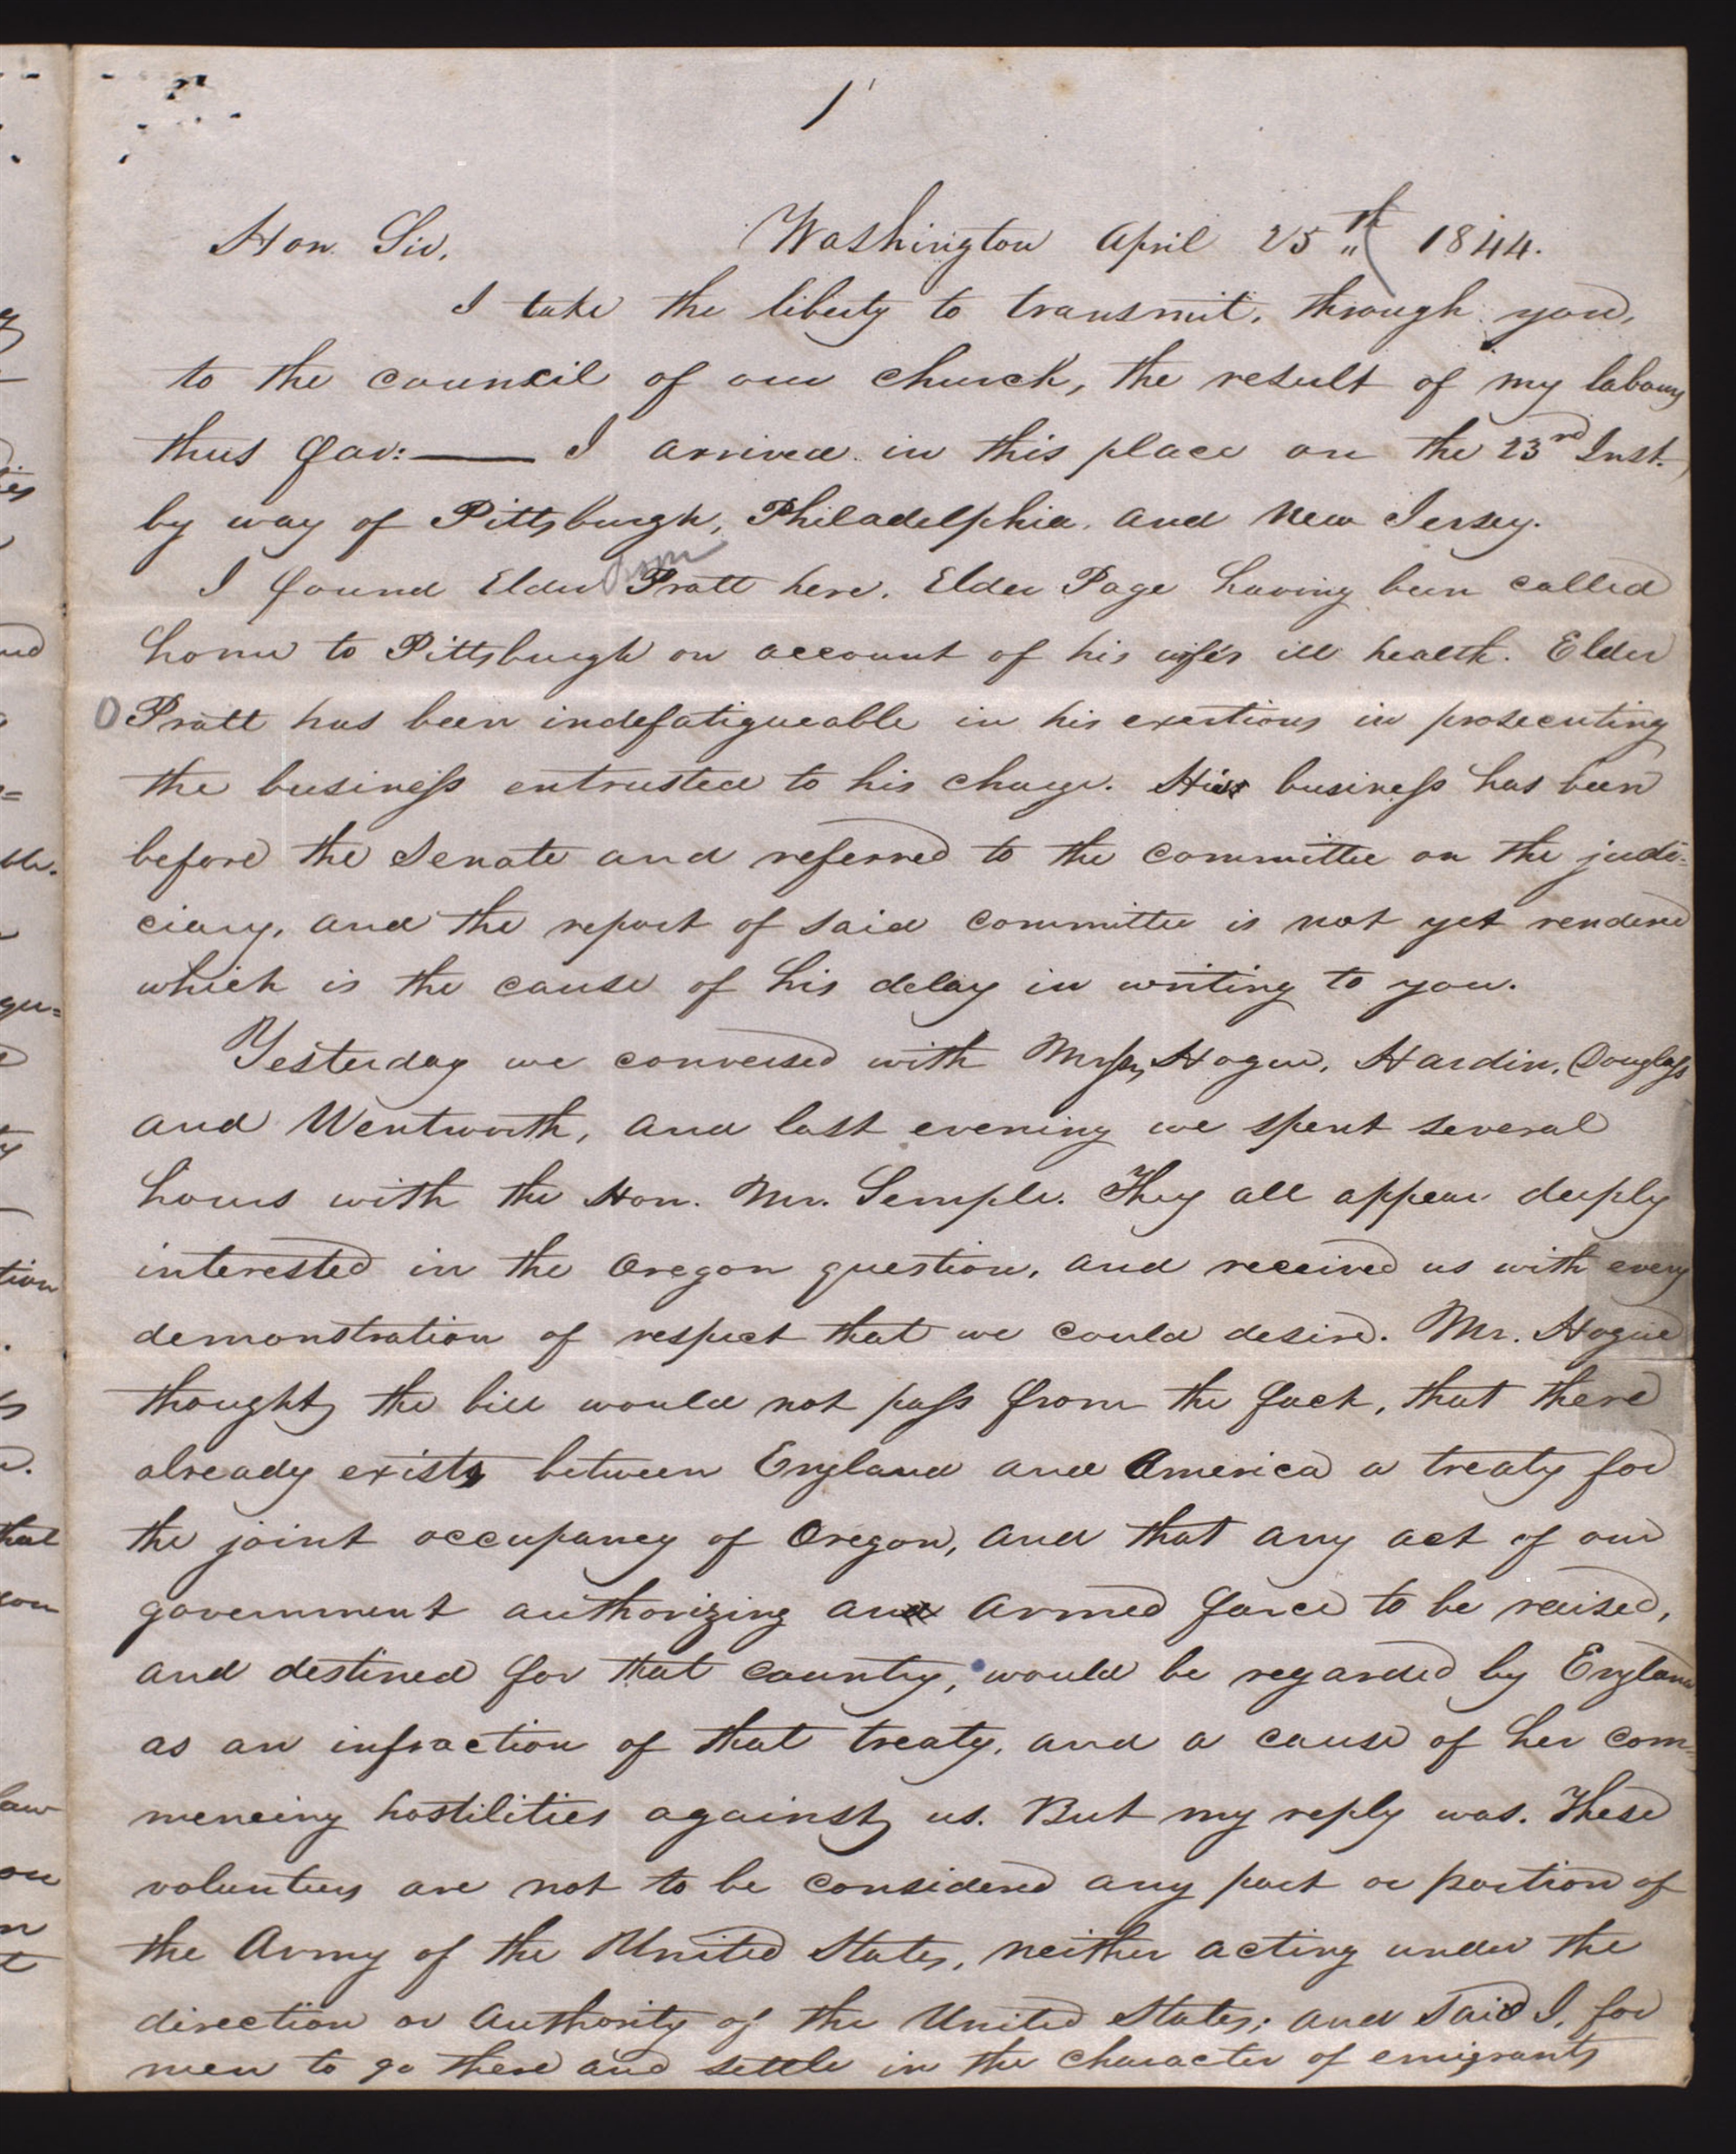 1
Hon. Sir, Washington April 25th 1844.
I take the liberty to transmit, through you,
to the council of our church, the result of my labours
thus far:—— I arrived in this place on the 23rd Inst.
by way of Pittsburgh, Philadelphia, and New Jersey.
I found Elder Orson Pratt here, Elder Page having been called
home to Pittsburgh on account of his wife's ill health. Elder
O Pratt has been indefatigueable in his exertions in prosecuting
the business entrusted to his charge. His business has been
before the Senate and referred to the committee on the judi=
ciary, and the report of said committee is not yet rendered
which is the cause of his delay in writing to you.
Yesterday we conversed with Messrs, Hogue, Hardin, Douglass
and Wentworth, and last evening we spent several
hours with the Hon. Mr. Semple. They all appear deeply
interested in the Oregon question, and received us with every
demonstration of respect that we could desire. Mr. Hogue
thought the bill would not pass from the fact, that there
already exists between England and America a treaty for
the joint occupancy of Oregon, and that any act of our
government authorizing an armed force to be raised,
and destined for that country, would be regarded by England
as an infraction of that treaty, and a cause of her com=
mencing hostilities against us. But my reply was. These
volunteers are not to be considered any part or portion of
the Army of the United States, neither acting under the
direction or authority of the United States; and said I, for
men to go there and settle in the character of emigrants